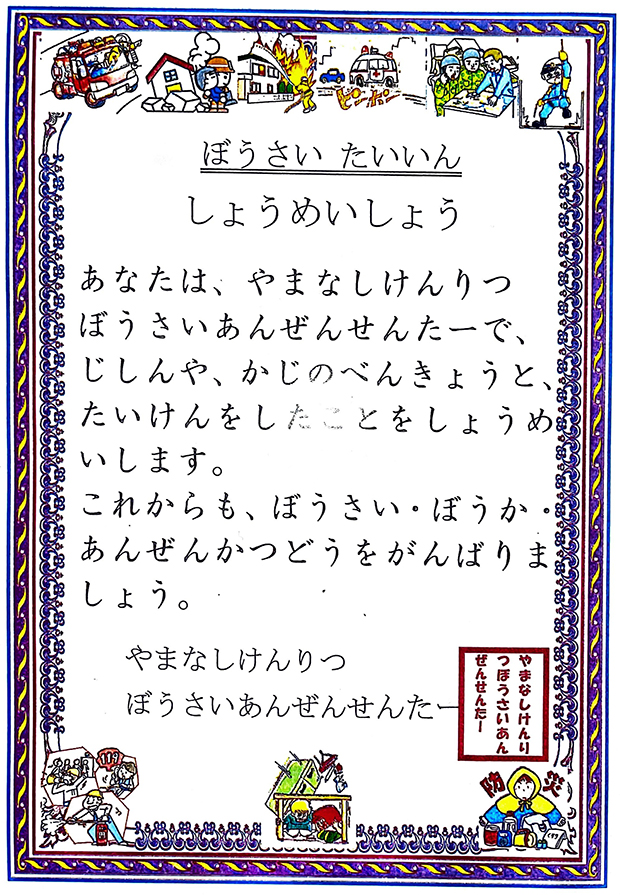 ピーポー
ぼうさい たいいん
しょうめいしょう
あなたは、やまなしけんりつ
ぼうさいあんぜんせんたーで、
じしんや、かじのべんきょうと、
たいけんをしたことをしょうめ
いします。
これからも、ぼうさい・ぼうか・
あんぜんかつどうをがんばりま
しょう。
やまなしけんりつ
ぼうさいあんぜんせんたー
やまなしけんり
つぼうさいあん
ぜんせんたー
119
防災